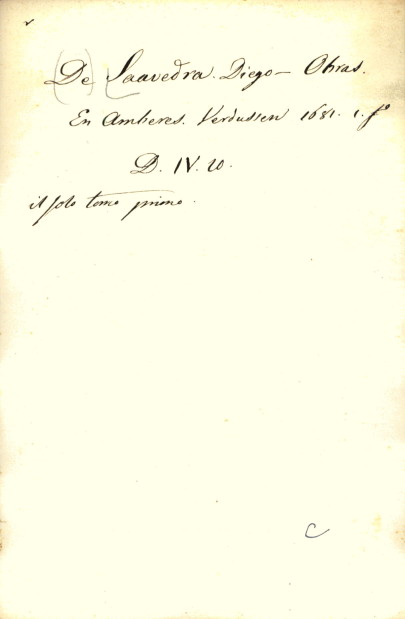 (De) Saavedra. Diego — Obras.
En Amberes. Verdussen 1681. 1. fº
D. IV. 20.
il solo tomo primo.
C